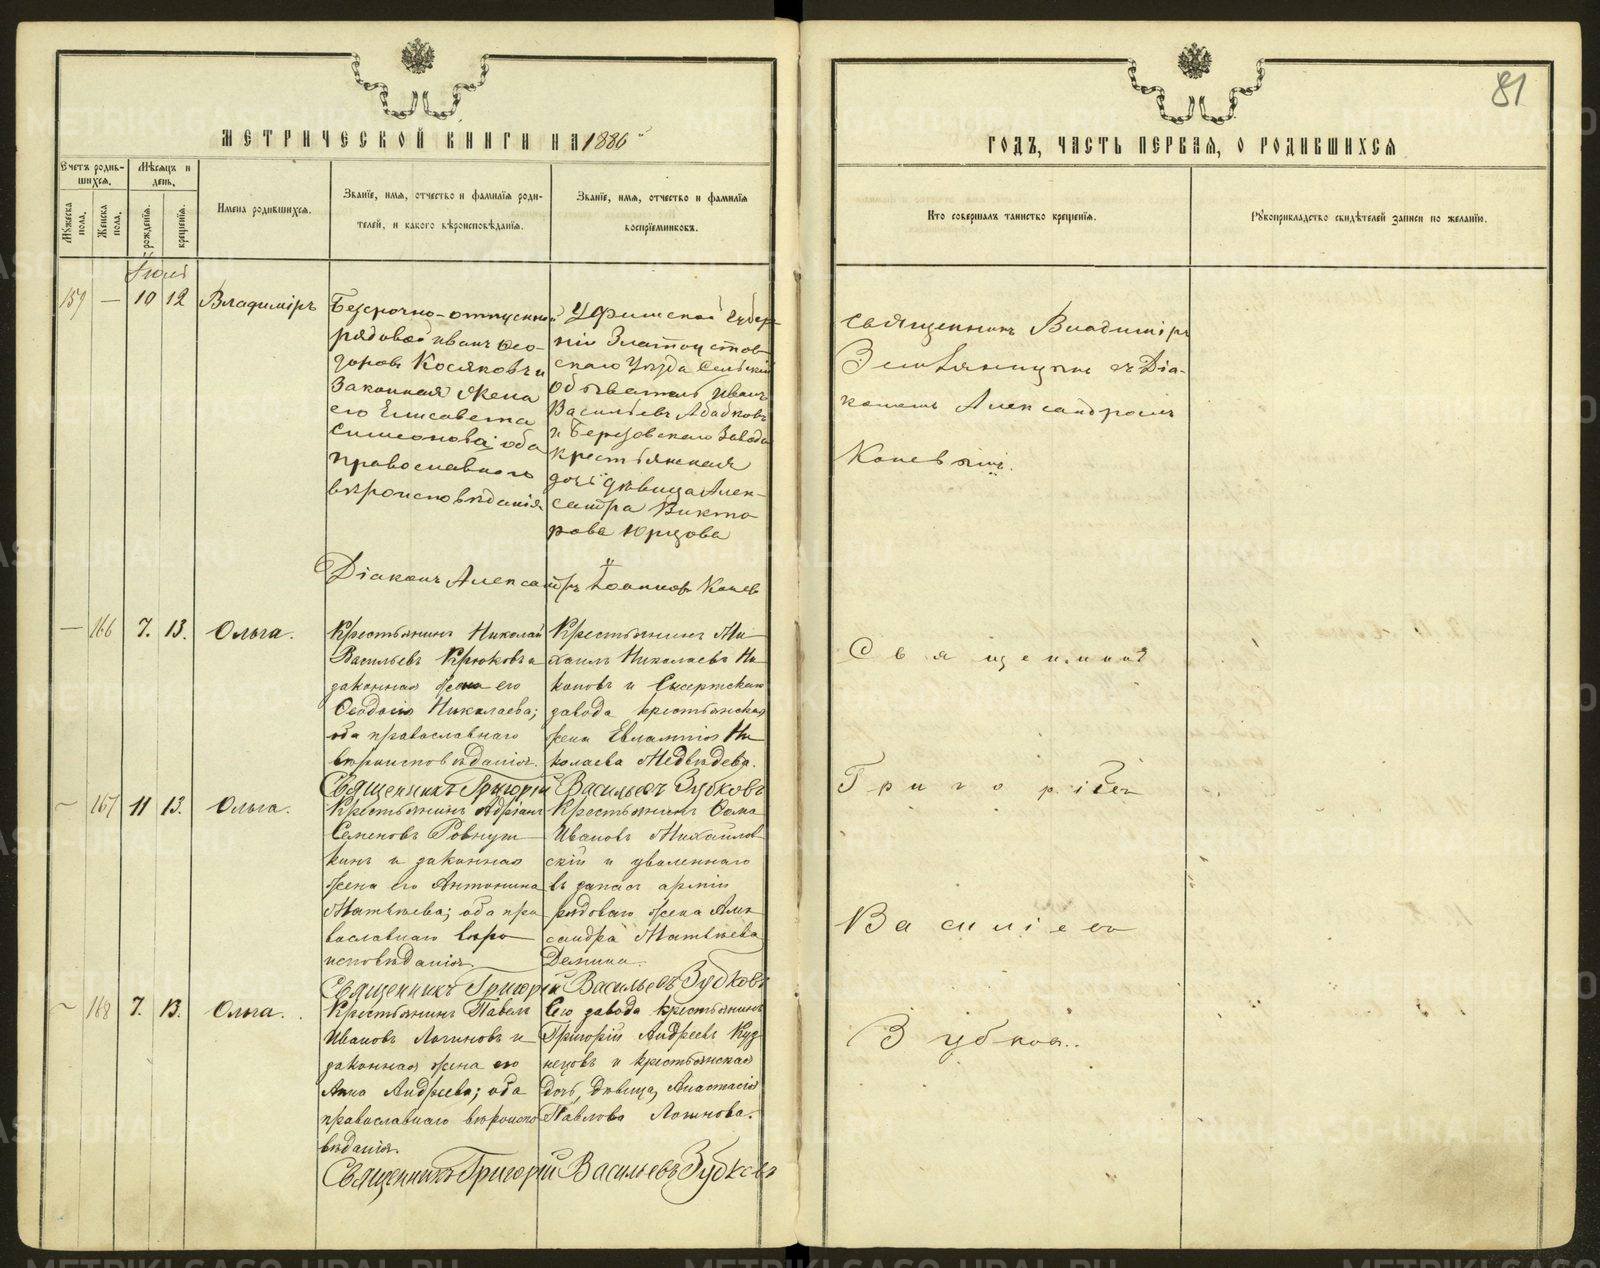 81
МЕТРИЧЕСКОЙ КНИГИ НА 1886й
ГОДЪ, ЧАСТЬ ПЕРВАЯ, О РОДИВШИХСЯ
Счетъ родив-
шихся.
Мѣсяцъ и
день.
Мужеска
пола.
Женска
пола.
рожденія.
крещенія.
Имена родившихся.
Званіе, имя, отчество и фамилія роди-
телей, и какого вѣроисповѣданія.
Званіе, имя, отчество и фамилія
воспріемниковъ.
Кто совершалъ таинство крещенія.
Рукоприкладство свидѣтелей записи по желанію.
Іюля
159 — 10 12 Владимiръ
Безсрочно-отпускной
рядовой Иванъ Ѳео-
доровъ Косяковъ и
законная жена
его Елисавета
Симеонова; оба
православнаго
вѣроисповѣданія.
Уфимской Губер-
ніи Златоустов-
скаго Уѣзда Сельскій
Обыватель Иванъ
Васильевъ Абабковъ
и Березовскаго Завода
крестьянская
дочь дѣвица Алек-
сандра Викто-
рова Юрцова
Священникъ Владимiръ
Земляницынъ съ Діа-
кономъ Александромъ
Коневымъ.
Діаконъ Александръ Іоанновъ Коневъ
— 166 7. 13. Ольга.
Крестьянинъ Николай
Васильевъ Крюковъ и
законная жена его
Ѳеодосія Николаева;
оба православнаго
вѣроисповѣданія.
Крестьянинъ Ми-
хаилъ Николаевъ Ни-
коновъ и Сысертскаго
завода крестьянская
жена Евлампія Ни-
колаева Медвѣдева.
Священникъ Григорій Васильевъ Зубковъ
— 167 11 13. Ольга.
Крестьянинъ Адріанъ
Семеновъ Ровнуш-
кинъ и законная
жена его Антонина
Матвѣева; оба пра-
вославнаго вѣро-
исповѣданія.
Крестьянинъ Ѳома
Ивановъ Михайлов-
скій и уволеннаго
въ запасъ арміи
рядоваго жена Алек-
сандра Матвѣева
Демина.
Священникъ Григорій Васильевъ Зубковъ
— 168 7. 13. Ольга.
Крестьянинъ Павелъ
Ивановъ Логиновъ и
законная жена его
Анна Андреева; оба
православнаго вѣроиспо-
вѣданія.
Сего завода крестьянинъ
Григорій Андреевъ Куз-
нецовъ и крестьянская
дочь, дѣвица, Анастасія
Павлова Логинова.
Священникъ Григорій Васильевъ Зубковъ
Священникъ
Григорій
Васильевъ
Зубковъ.
METRIKI.GASO-URAL.RU